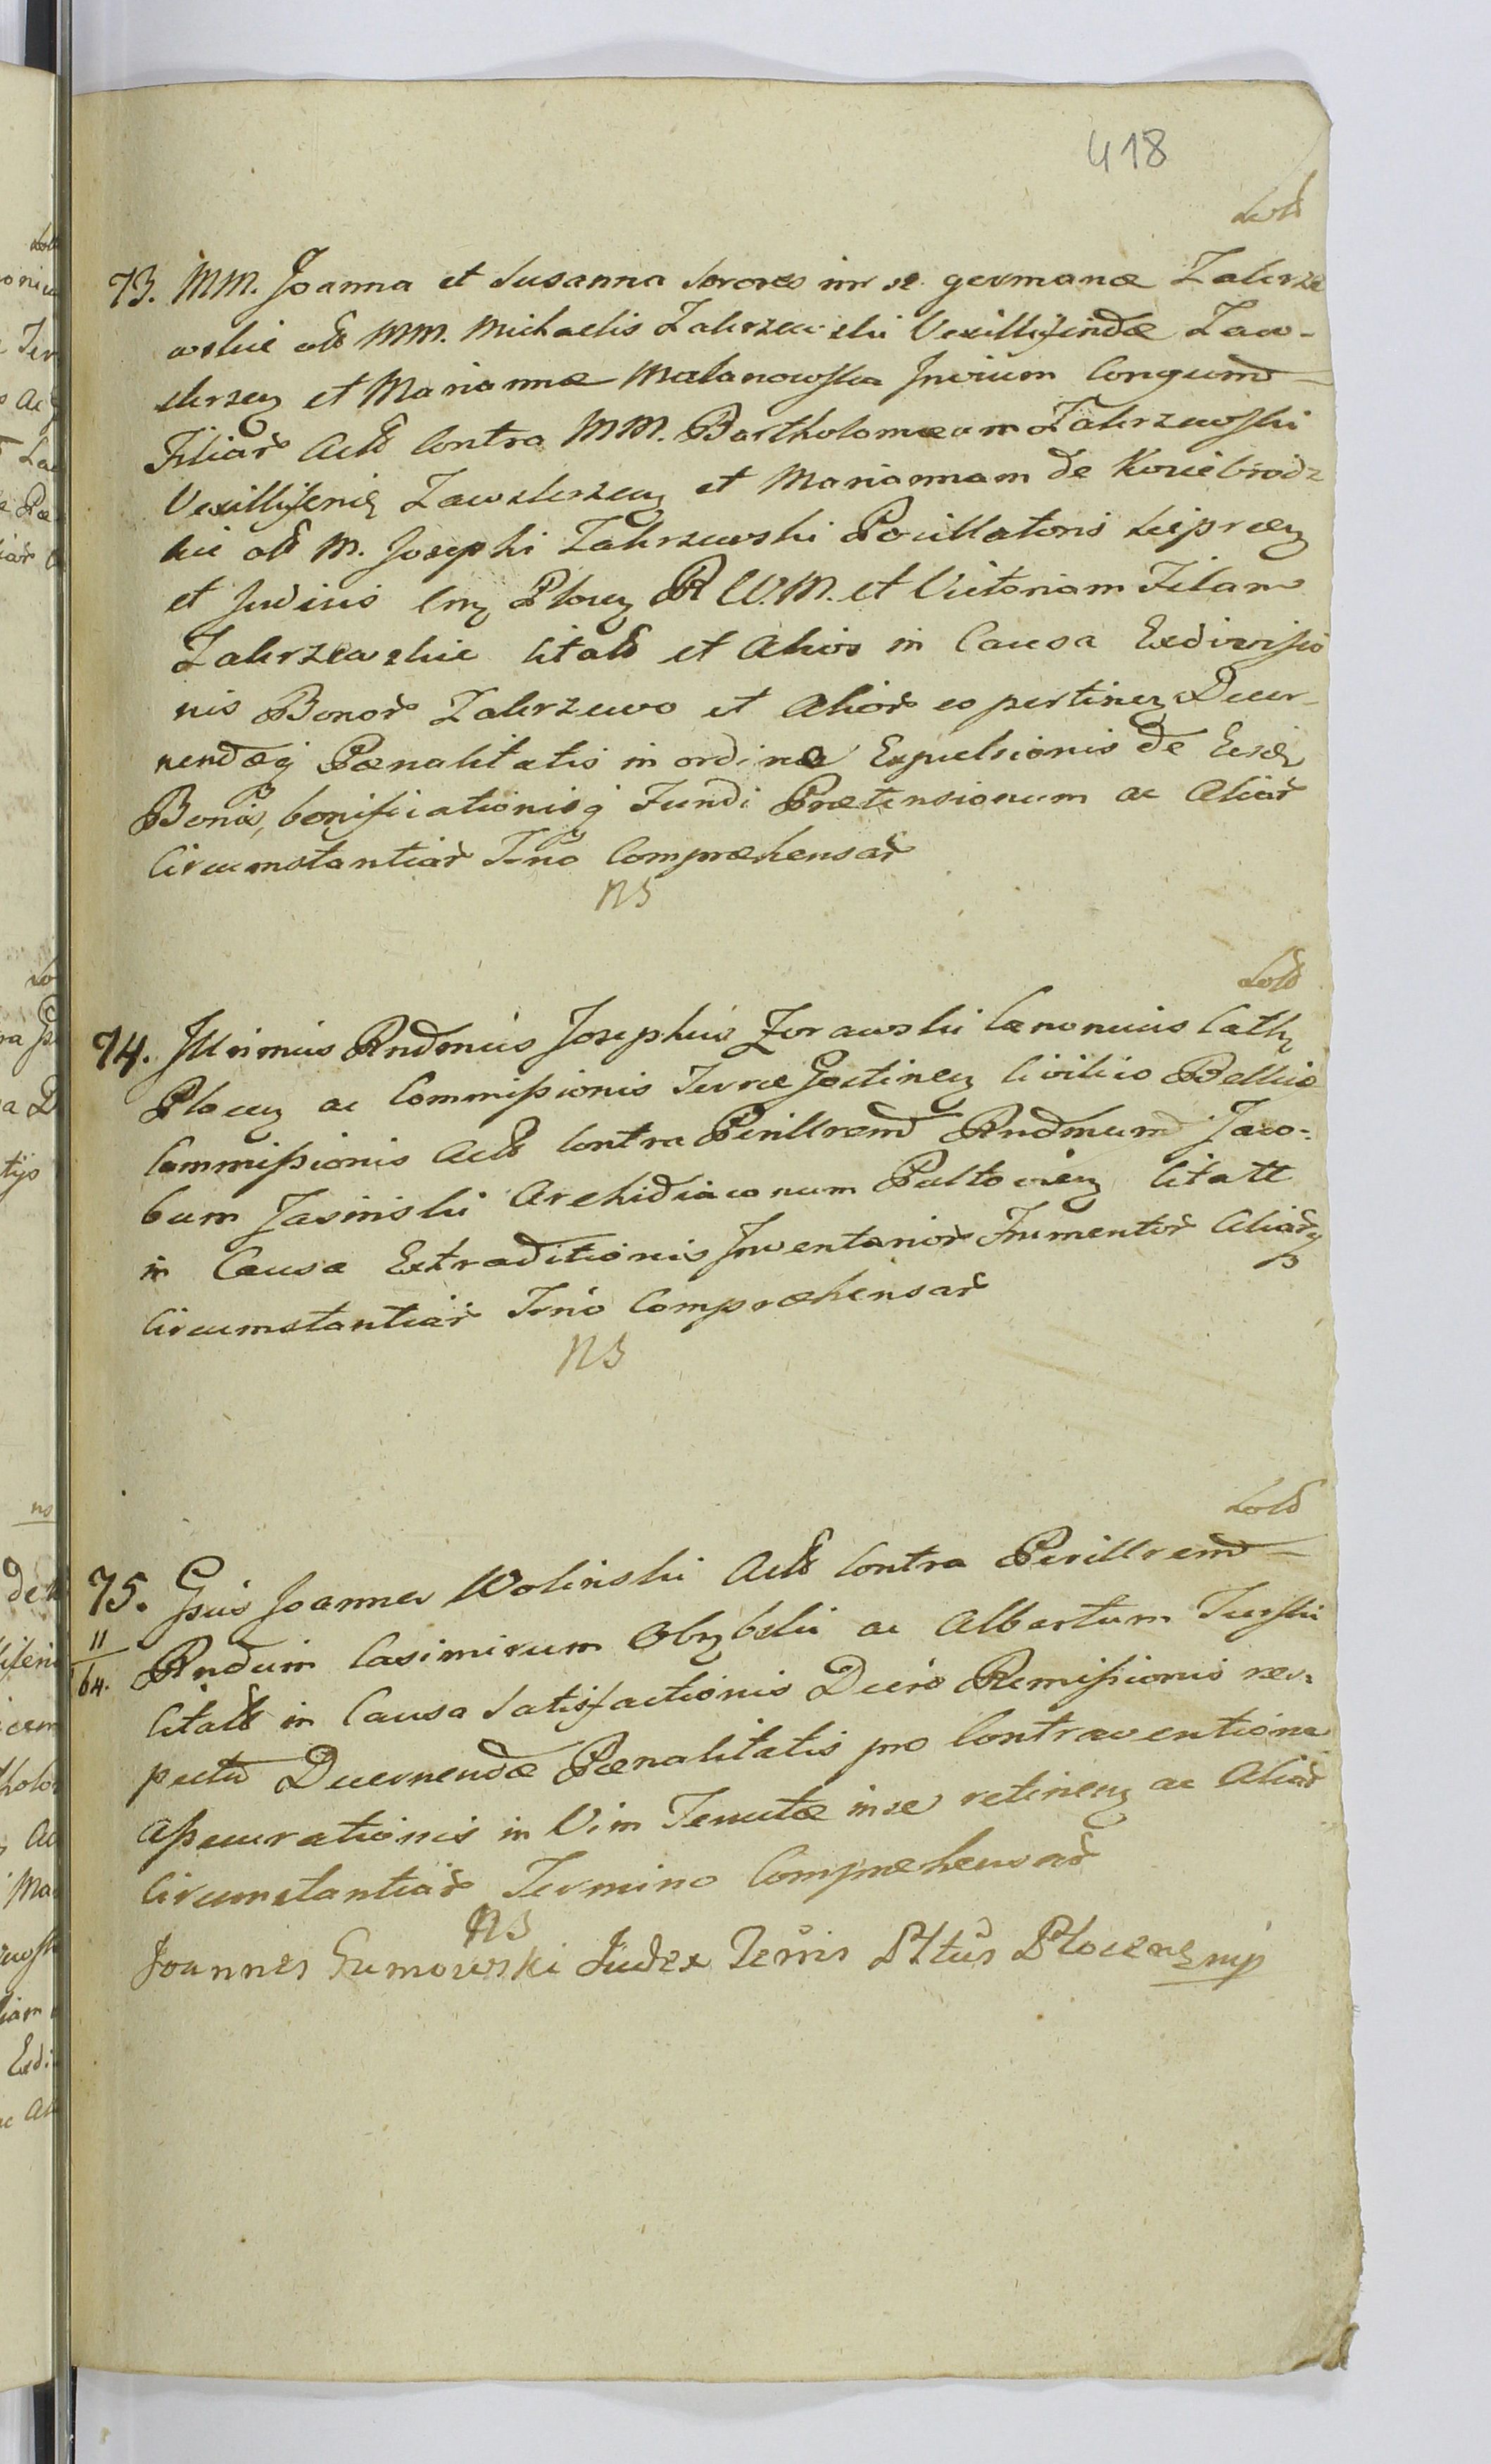 418
Sold
73. MM. Joanna et Susanna Sorores inr se germanæ Zakrze
wskie olb MM. Michaelis Zakrzewski Vexilliferidæ Zaw-
skrzen et Mariannæ Malanowska Invicem Conjugum
Filiar Actb Contra MM. Bartholomæum Zakrzewski
Vexilliferid Zawskrzen et Mariannam de Koziebrodz
kie olb M. Josephi Zakrzewski Pocillatoris Lipnen
et Judicis Cnz Plocen PR W.M. et Victoriam Filam
Zakrzewskie Citatb et Alios in Causa Exdivisio
nis Bonor Zakrzewo et Alior eo pertinen Decer-
nendæq Pœnalitatis in ordine Expulsionis de Eisd
Bonis, bonificationisq Fundi Prætensionum ac Aliar
Circumstantiar T-no Compræhensar
NS
Sold
74. Illrimus Rndmus Josephus Zorawski Canonicus Cath
Plocen ac Commissionis Terræ Gostinen Civilico Bellicæ
Commissionis Actb Contra Perillrem Rndmum Jaco-
bum Jasinski Archidiaconum Pultovien Citatt
in Causa Extraditionis Inventarior Frumentor Aliarq
Circumstantiar Trno Compræhensar
NS
Sold
75. Gsus Joannes Wolinski Actb Contra Perillrem
11
64. Rndum Casimirum Obrybski ac Albertum Turski
Citatb in Causa Satisfactionis Decro Remissionis res-
pectu Decernendæ Pœnalitatis pro Contraventione
Assecurationis in Vim Tenutæ in se retinen ac Aliar
Circumstantiar Termino Compræhensar
NS
Joannes Sumowski Judex Terris Pltus Plocens mp